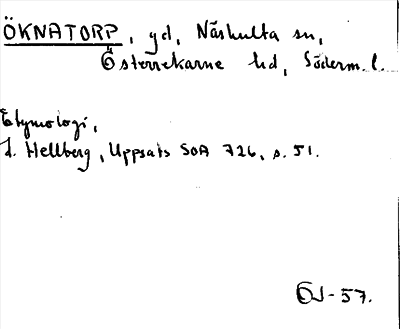 ÖKNATORP, gd, Näshulta sn,
Österrekarne hd, Söderm. l.
Etymologi,
L. Hellberg, Uppsats SOA 726, s. 51.
ÖJ-57.